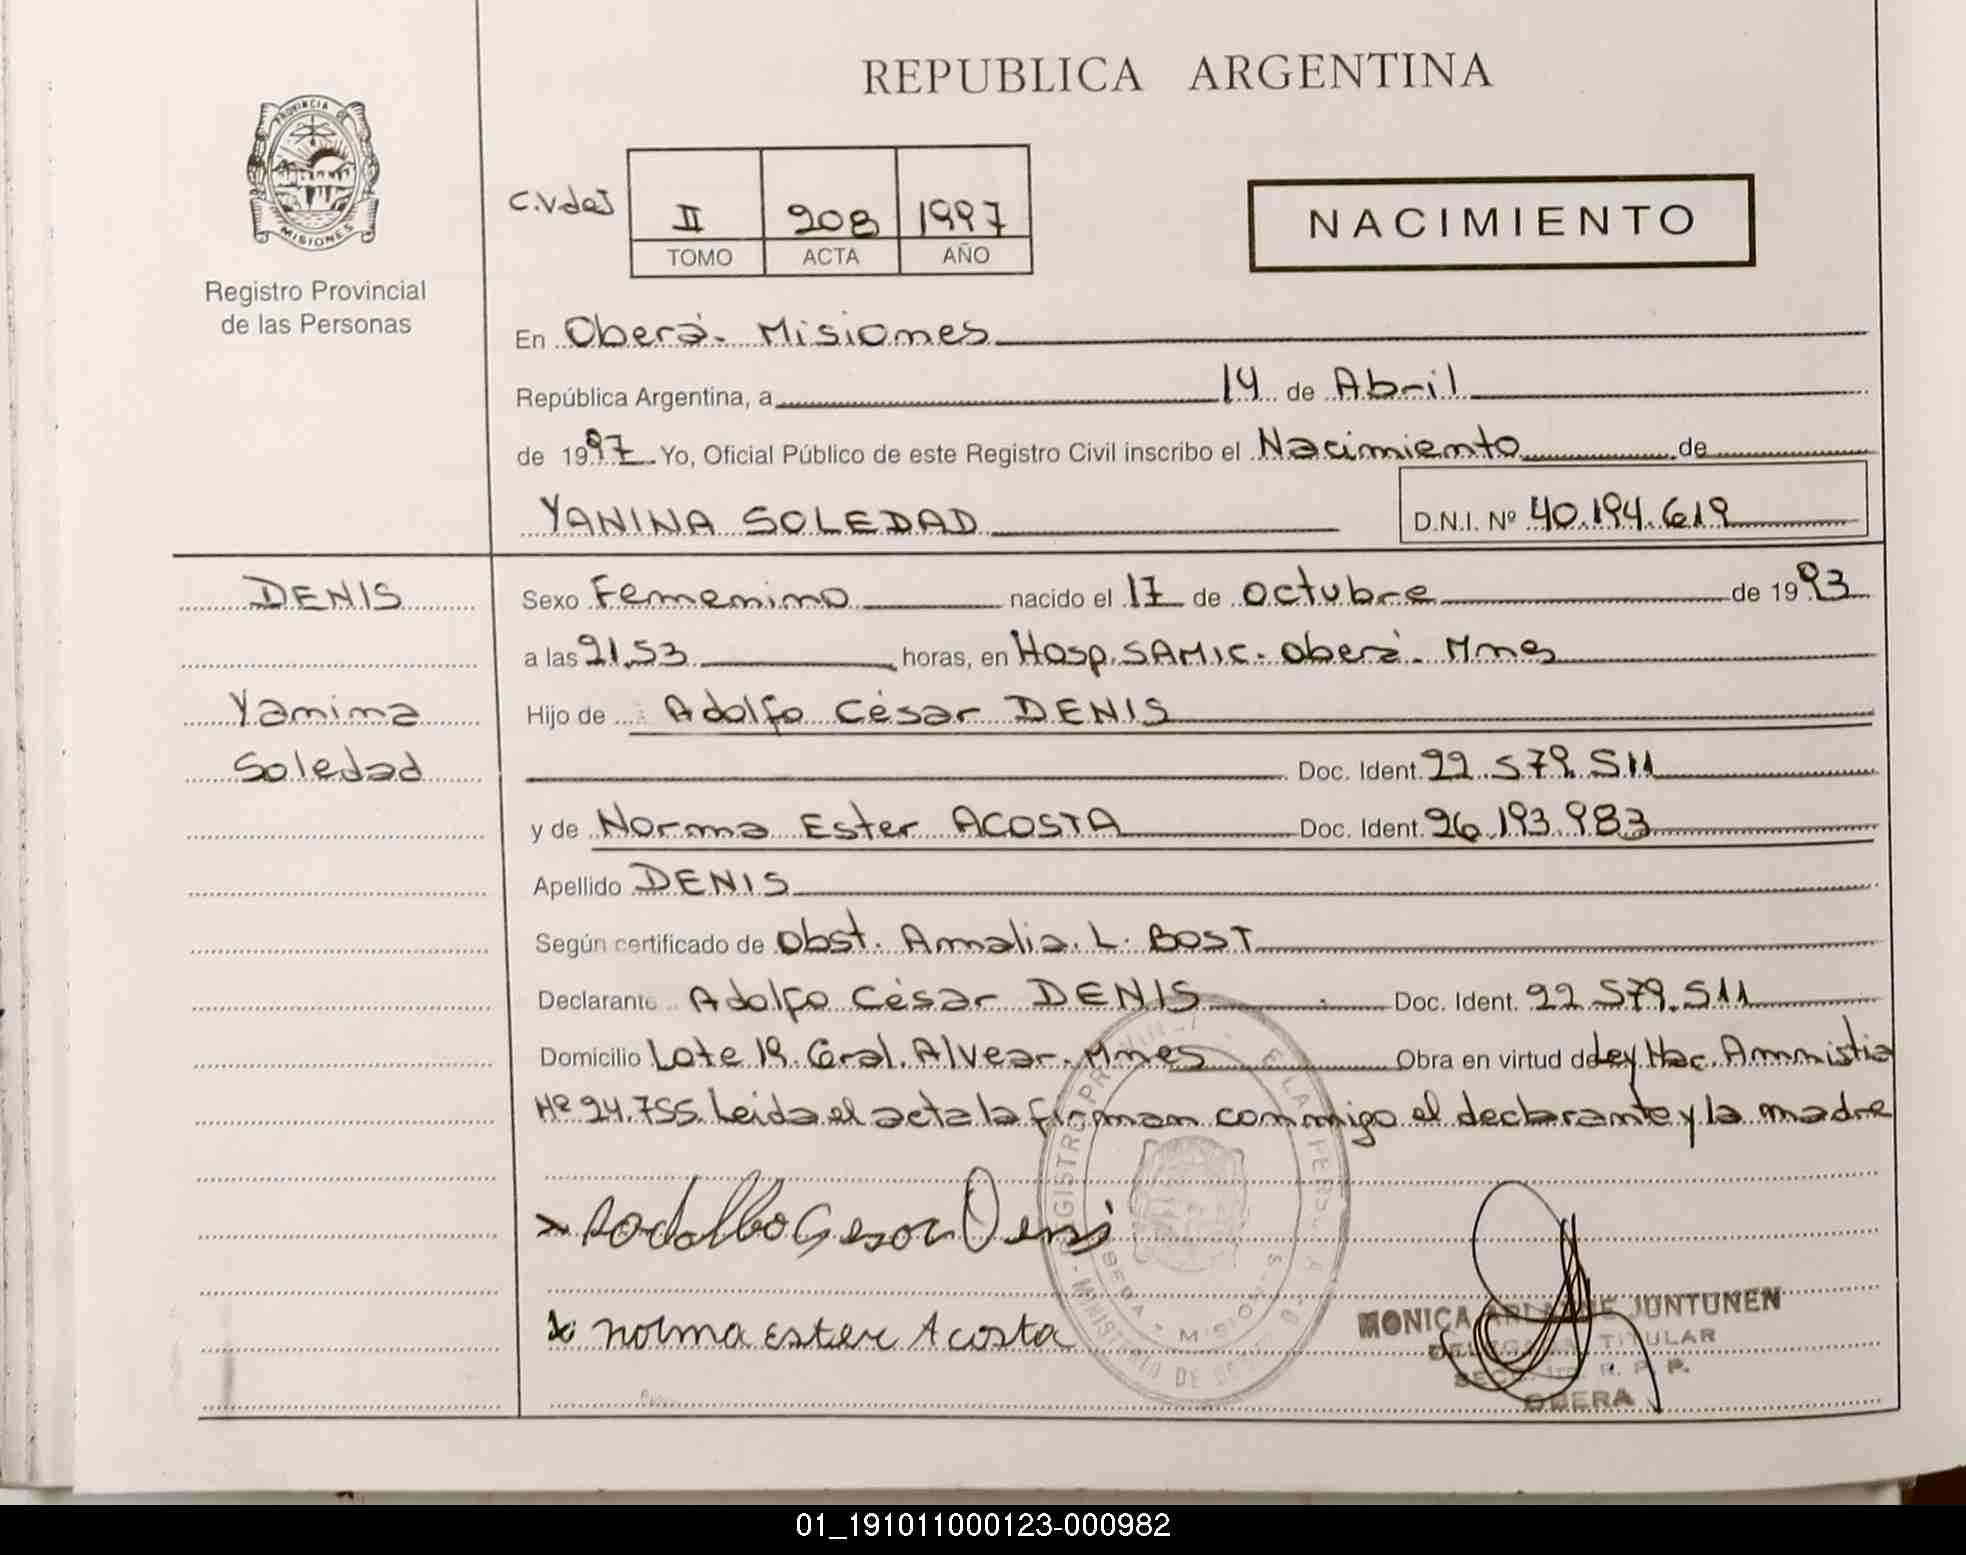 REPUBLICA ARGENTINA
PROVINCIA DE
MISIONES
Registro Provincial
de las Personas
II 208 1997
TOMO ACTA AÑO
NACIMIENTO
En Oberá. Misiones
República Argentina, a 14 de Abril
de 1997 Yo, Oficial Público de este Registro Civil inscribo el Nacimiento de
YANINA SOLEDAD
D.N.I. Nº 40.194.619
DENIS
Yanina
Soledad
Sexo Femenino nacido el 17 de octubre de 1993
a las 21.53 horas, en Hosp. SAMIC. Oberá. Mnes
Hijo de Adolfo César DENIS
Doc. Ident. 22.579.511
y de Norma Ester ACOSTA Doc. Ident. 26.193.983
Apellido DENIS
Según certificado de Obst. Amalia. L. BOST
Declarante Adolfo César DENIS Doc. Ident. 22.579.511
Domicilio Lote 19. Gral. Alvear. Mnes Obra en virtud de Ley Nac. Amnistia
Nº 24.755. Leida el acta la firman conmigo el declarante y la madre
Norma Ester Acosta
MONICA JUNTUNEN
TITULAR
R. P. P.
OBERA
01_191011000123-000982